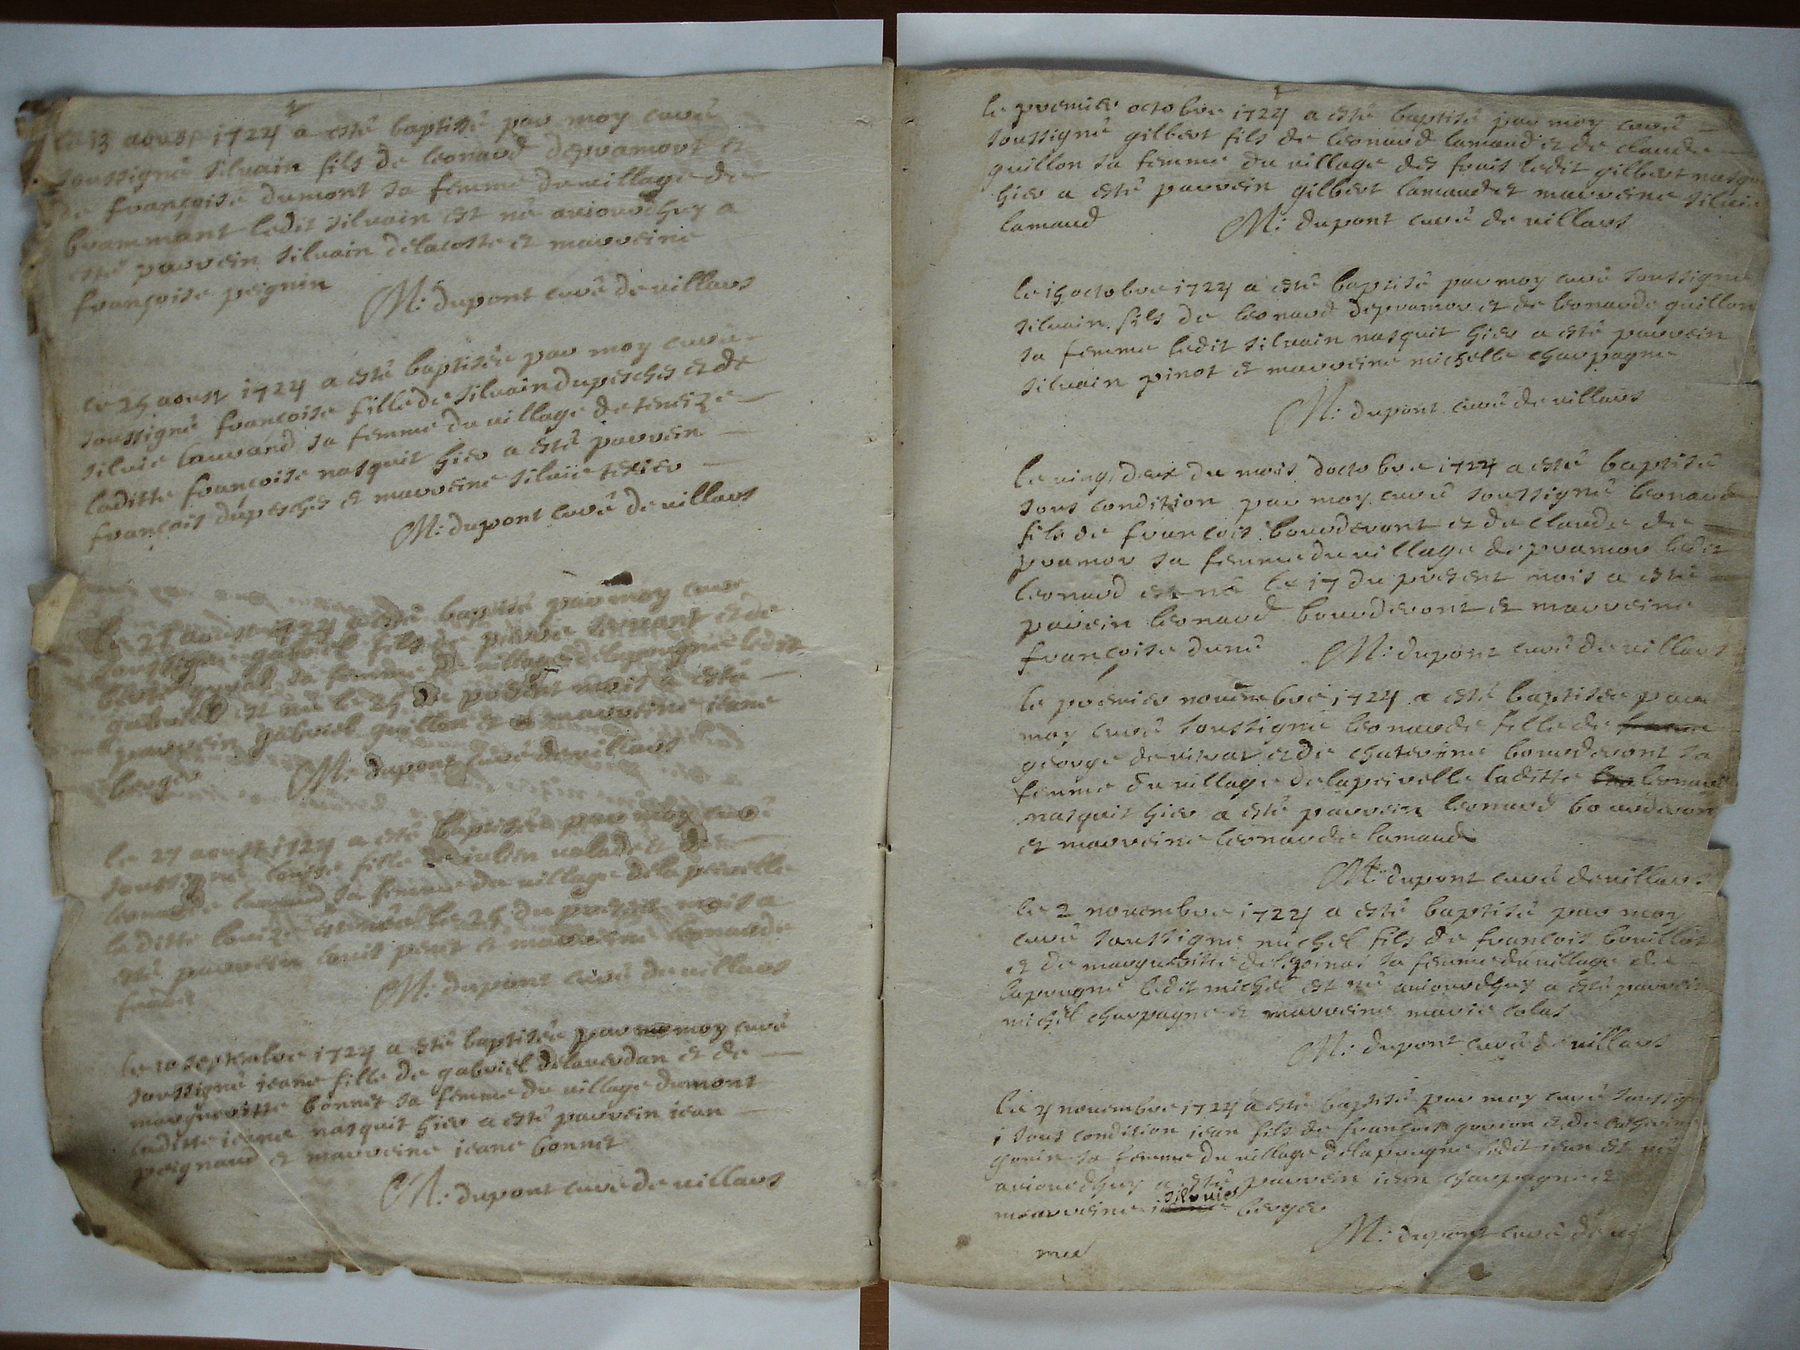 le 13 aoust 1724 a esté baptisé par moy curé
soussigné silvain fils de leonard depramort et
de françoise dumont sa femme du village de
brammant ledit silvain est né auiourdhuy a
esté parrein silvain delacoste et marreine
françoise peignin
M: dupont curé de villars
le 25 aoust 1724 a esté baptisée par moy curé
soussigné francoise fille de silvain dupeschés et de
silvie lauvard sa femme du village de
laditte francoise nasquit hier a esté parrein
françois dupeschés et marreine silvie texier
M: dupont curé de villars
le 27 aoust 1724 a esté baptisé par moy curé
soussigné gabriel fils de pierre et de
sa femme du village delapougne ledit
gabriel est né le 25 du present mois a esté
parrein gabriel guillon et marreine ieane
berger
M: dupont curé de villars
le 27 aoust 1724 a esté baptisée par moy curé
soussigné louise fille de iulien valade et de
leonarde lamaud sa femme du village dela peirelle
laditte louize est née le 25 du present mois a
esté parrein louis petit et marreine leonarde
M: dupont curé de villars
le 10 septembre 1724 a esté baptisée par moy curé
soussigné ieane fille de gabriel delaverdan et de
margueritte bonnet sa femme du village dumont
laditte ieane nasquit hier a esté parrein iean
peignaud et marreine ieane bonnet
M: dupont curé de villars
le premier octobre 1724 a esté baptisé par moy curé
soussigné gilbert fils de leonard lamaud et de claude
guillon sa femme du village des frais ledit gilbert nasqu
hier a esté parrein gilbert lamaud et marreine silvie
lamaud
M: dupont curé de villars
le 15 octobre 1724 a esté baptisé par moy curé soussigné
silvain fils de leonard depramor et de leonarde guillon
sa femme ledit silvain nasquit hier a esté parrein
silvain pinot et marreine michelle charpagne
M: dupont curé de villars
le ving deux du mois doctobre 1724 a esté baptisé
sous condition par moy curé soussigné leonard
fils de françois bourderont et de claude de
pramor sa femme du village de pramor ledit
leonard est né le 17 du present mois a esté
parein leonard bourderont et marreine
françoise
M: dupont curé de villars
le premier novembre 1724 a esté baptisée par
moy curé soussigné leonarde fille de
george et de chaterine bourderont sa
femme du village delapeirelle laditte leonard
nasquit hier a esté parrein leonard bourderon
et marreine leonarde lamaud
M: dupont curé de villars
le 2 novembre 1724 a esté baptisé par moy
curé soussigné michel fils de françois bouillot
et de margueritte sa femme du village de
lapougne ledit michel est né auiourdhuy a esté parrein
michel charpagne et marreine marie colas
M: dupont curé de villars
le 4 novembre 1724 a esté baptisé par moy curé soussign
sous condition iean fils de françois et de catherine
sa femme du village delapougne ledit iean est né
auiourdhuy a esté parrein iean charpagne et
silvie
marreine berger
M: dupont curé de vi